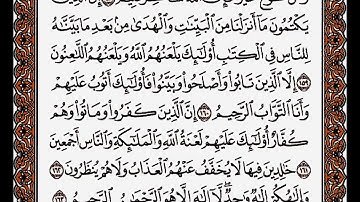 يَكْتُمُونَ مَآ أَنزَلْنَا مِنَ ٱلْبَيِّنَٰتِ وَٱلْهُدَىٰ مِنۢ بَعْدِ مَا بَيَّنَّٰهُ
لِلنَّاسِ فِى ٱلْكِتَٰبِ أُو۟لَٰٓئِكَ يَلْعَنُهُمُ ٱللَّهُ وَيَلْعَنُهُمُ ٱللَّٰعِنُونَ
١٥٩ إِلَّا ٱلَّذِينَ تَابُوا۟ وَأَصْلَحُوا۟ وَبَيَّنُوا۟ فَأُو۟لَٰٓئِكَ أَتُوبُ عَلَيْهِمْ
وَأَنَا ٱلتَّوَّابُ ٱلرَّحِيمُ ١٦٠ إِنَّ ٱلَّذِينَ كَفَرُوا۟ وَمَاتُوا۟ وَهُمْ
كُفَّارٌ أُو۟لَٰٓئِكَ عَلَيْهِمْ لَعْنَةُ ٱللَّهِ وَٱلْمَلَٰٓئِكَةِ وَٱلنَّاسِ أَجْمَعِينَ
١٦١ خَٰلِدِينَ فِيهَا لَا يُخَفَّفُ عَنْهُمُ ٱلْعَذَابُ وَلَا هُمْ يُنظَرُونَ ١٦٢
وَإِلَٰهُكُمْ إِلَٰهٌ وَٰحِدٌ لَّآ إِلَٰهَ إِلَّا هُوَ ٱلرَّحْمَٰنُ ٱلرَّحِيمُ ١٦٣